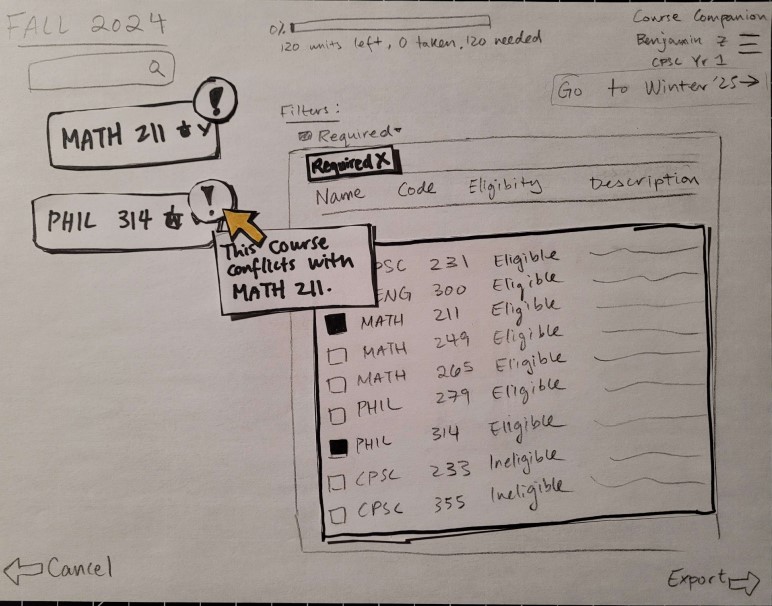 FALL 2024
0%
120 units left, 0 taken, 120 needed
Course Companion
Benjamin Z
CPSC Yr 1
Go to Winter '25→
MATH 211
!
PHIL 314
!
This Course
conflicts with
MATH 211.
Filters:
Required
Required X
Name Code Eligibity Description
PSC 231 Eligible
ENG 300 Eligible
MATH 211 Eligible
MATH 249 Eligible
MATH 265 Eligible
PHIL 279 Eligible
PHIL 314 Eligible
CPSC 233 Ineligible
CPSC 355 Ineligible
Cancel
Export